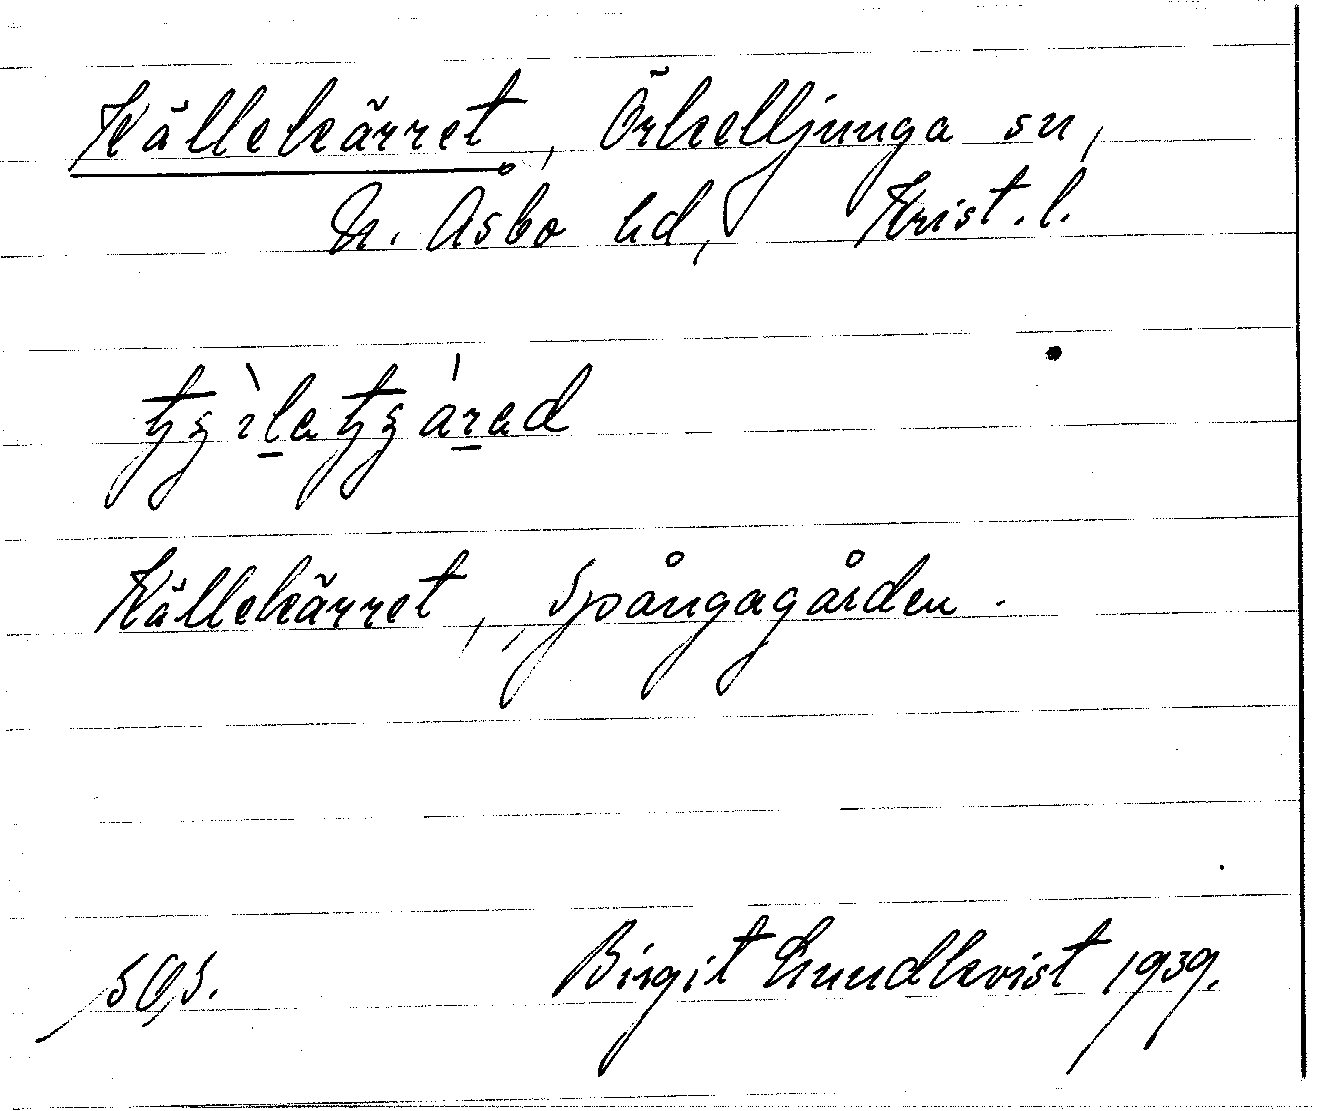 Källekärret, Örkelljunga sn,
N. Åsbo hd, Krist. l.
Källekärret, Spångagården.
Birgit Lundkvist 1939.